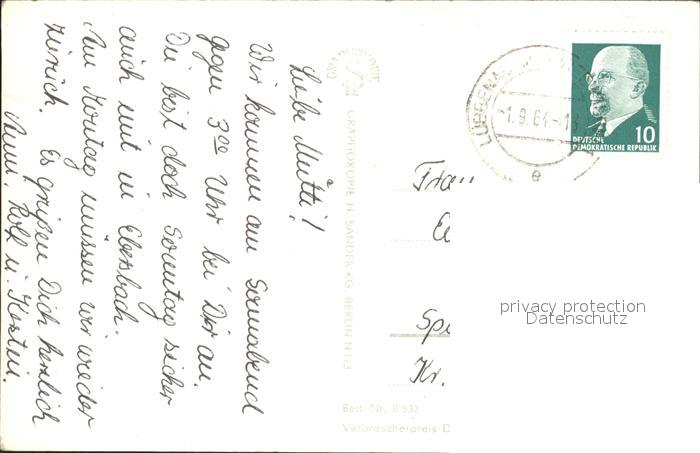 Liebe Mutti!
Wir kommen am Sonnabend
gegen 3.00 Uhr bei Dir an.
Du bist doch Sonntag sicher
auch mit in Ebersbach.
Am Montag müssen wir wieder
zurück. Es grüßen Dich herzlich
Rolf u. Kerstin.
GRAPHOKOPIE
GRAPHOKOPIE H. SANDER KG. BERLIN N 113
LÜBBENAU
-1.9.64-
e
10
DEUTSCHE
DEMOKRATISCHE REPUBLIK
Frau
Sp
Kr.
privacy protection
Datenschutz
Best. Nr. B 832
Verbraucherpreis D